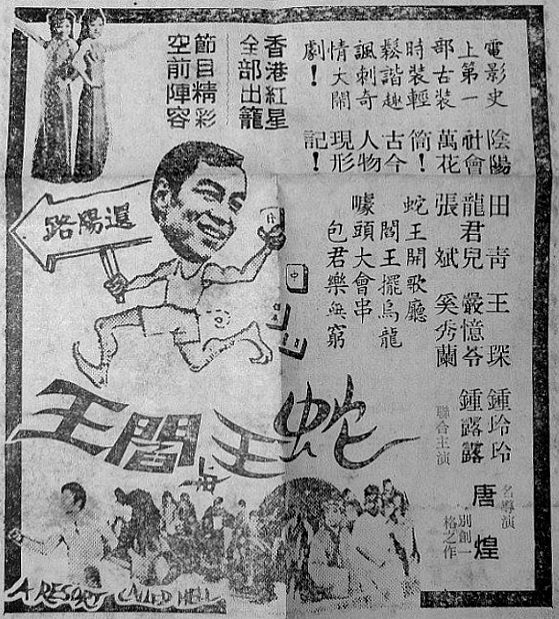 電影史
上第一
部古裝
時裝輕
鬆諧趣
諷刺奇
情大鬧
劇!
陰陽
社會
萬花
筒!
古今
人物
現形
記!
香港紅星
全部出籠
節目精彩
空前陣容
還陽路
田青 王琛 鍾玲玲
龍君兒 嚴憶苓 鍾
張斌 奚秀蘭
聯合主演
蛇王開歌廳
閻王擺烏龍
噱頭大會串
包君樂無窮
名導演
唐煌
別創一
格之作
中
蛇王与閻王
A RESORT CALLED HELL